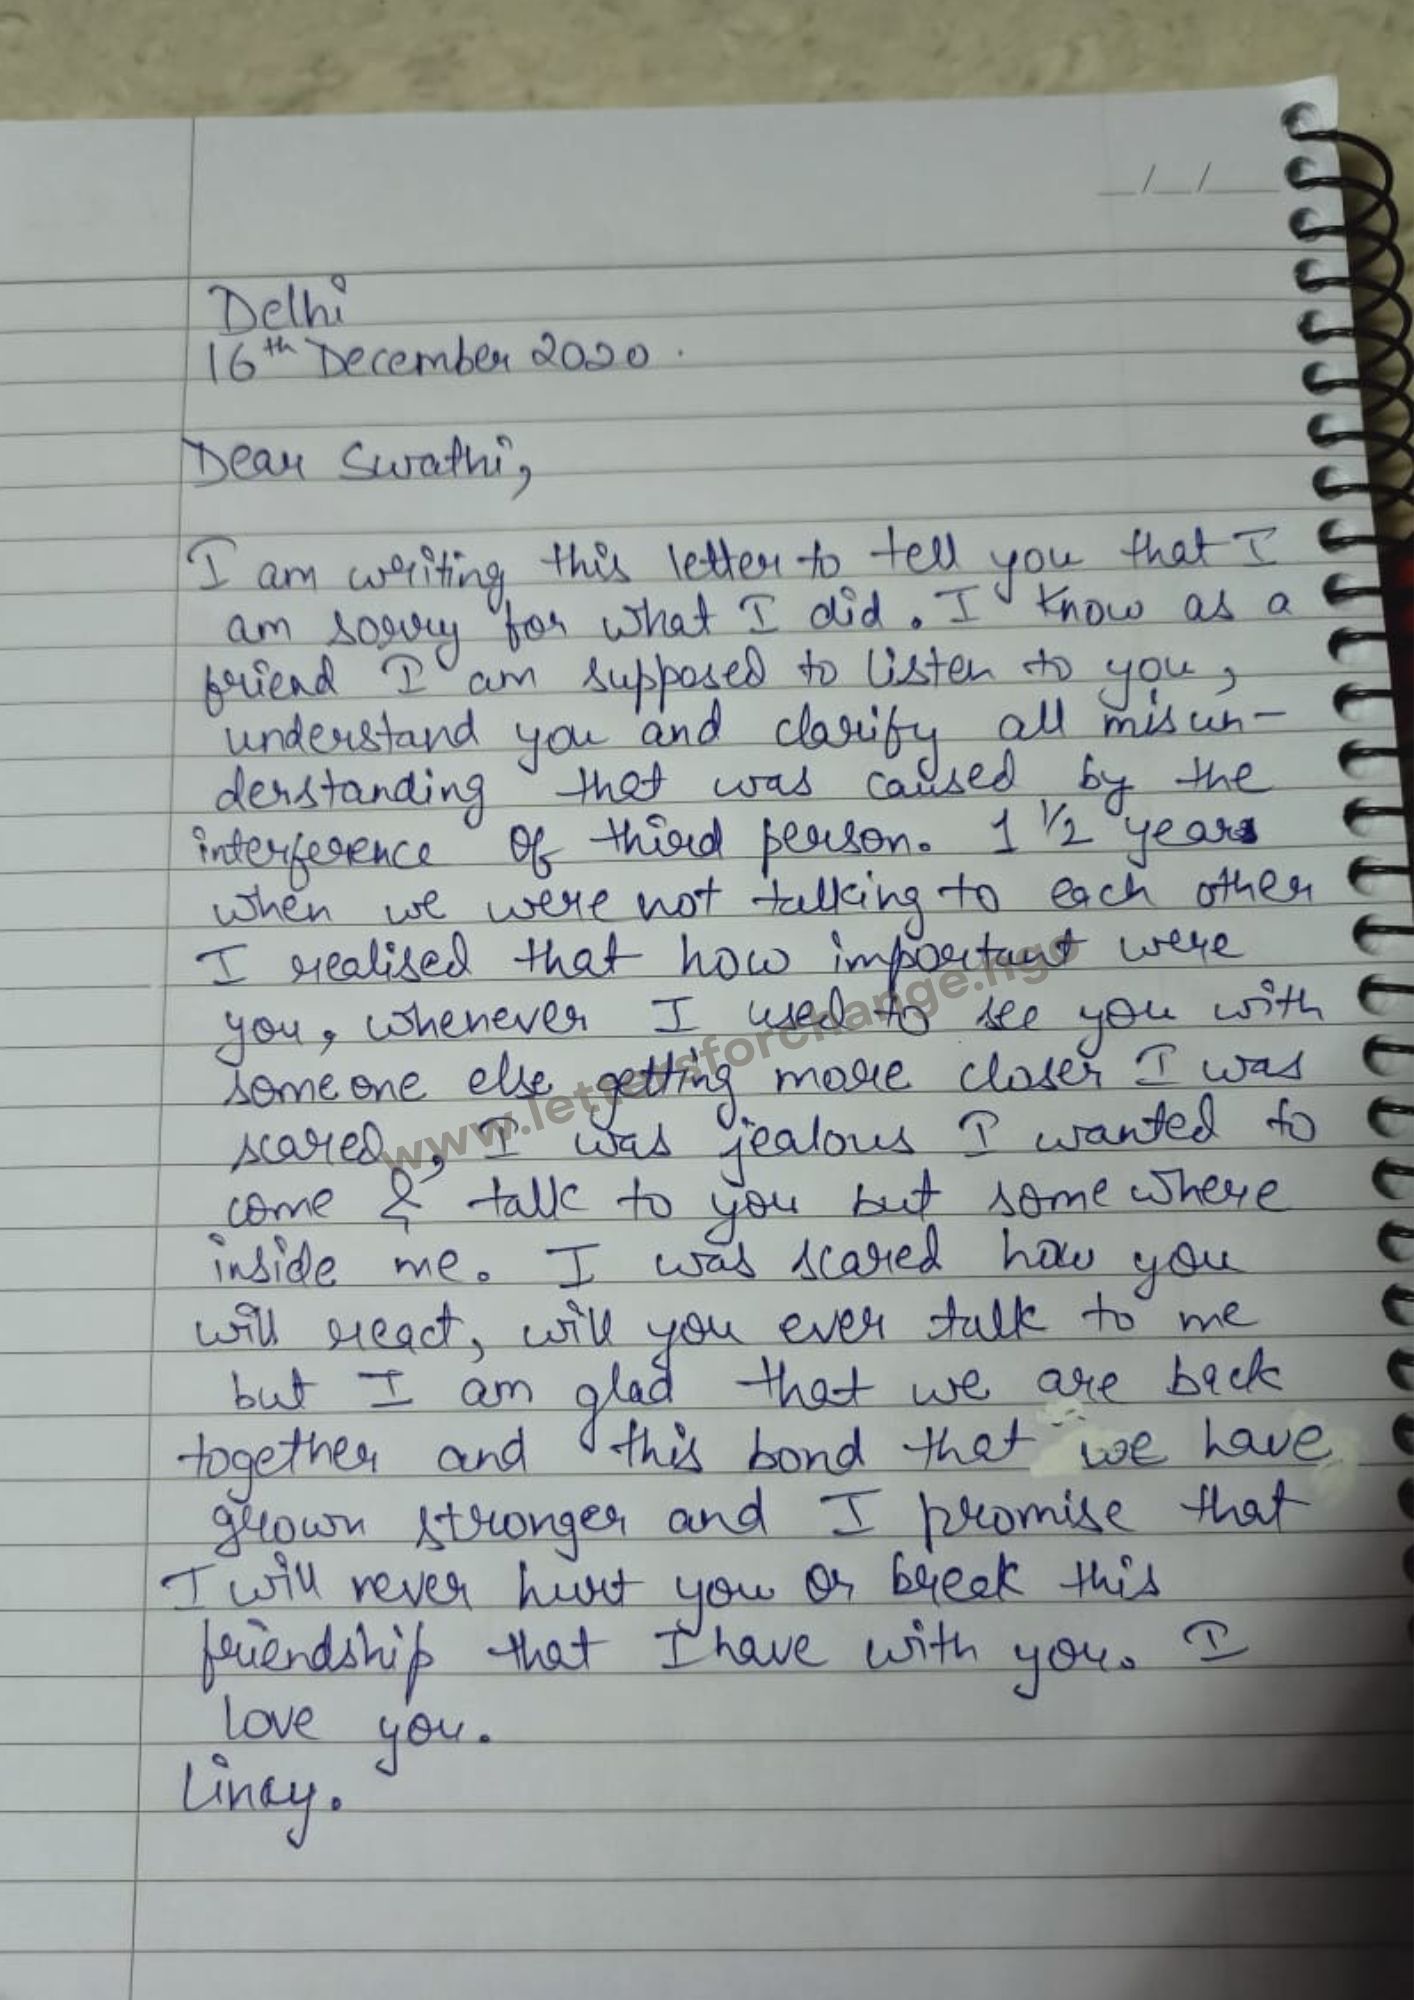 __/__/____
Delhi
16th December 2020.
Dear Swathi,
I am writing this letter to tell you that I
am sorry for what I did. I know as a
friend I am supposed to listen to you,
understand you and clarify all misun-
derstanding that was caused by the
interference of third person. 1 1/2 years
when we were not talking to each other
I realised that how important were
you, whenever I used to see you with
someone else getting more closer I was
scared, I was jealous I wanted to
come & talk to you but somewhere
inside me. I was scared how you
will react, will you ever talk to me
but I am glad that we are back
together and this bond that we have
grown stronger and I promise that
I will never hurt you or break this
friendship that I have with you. I
love you.
Lincy.
www.lettersforchange.ngo